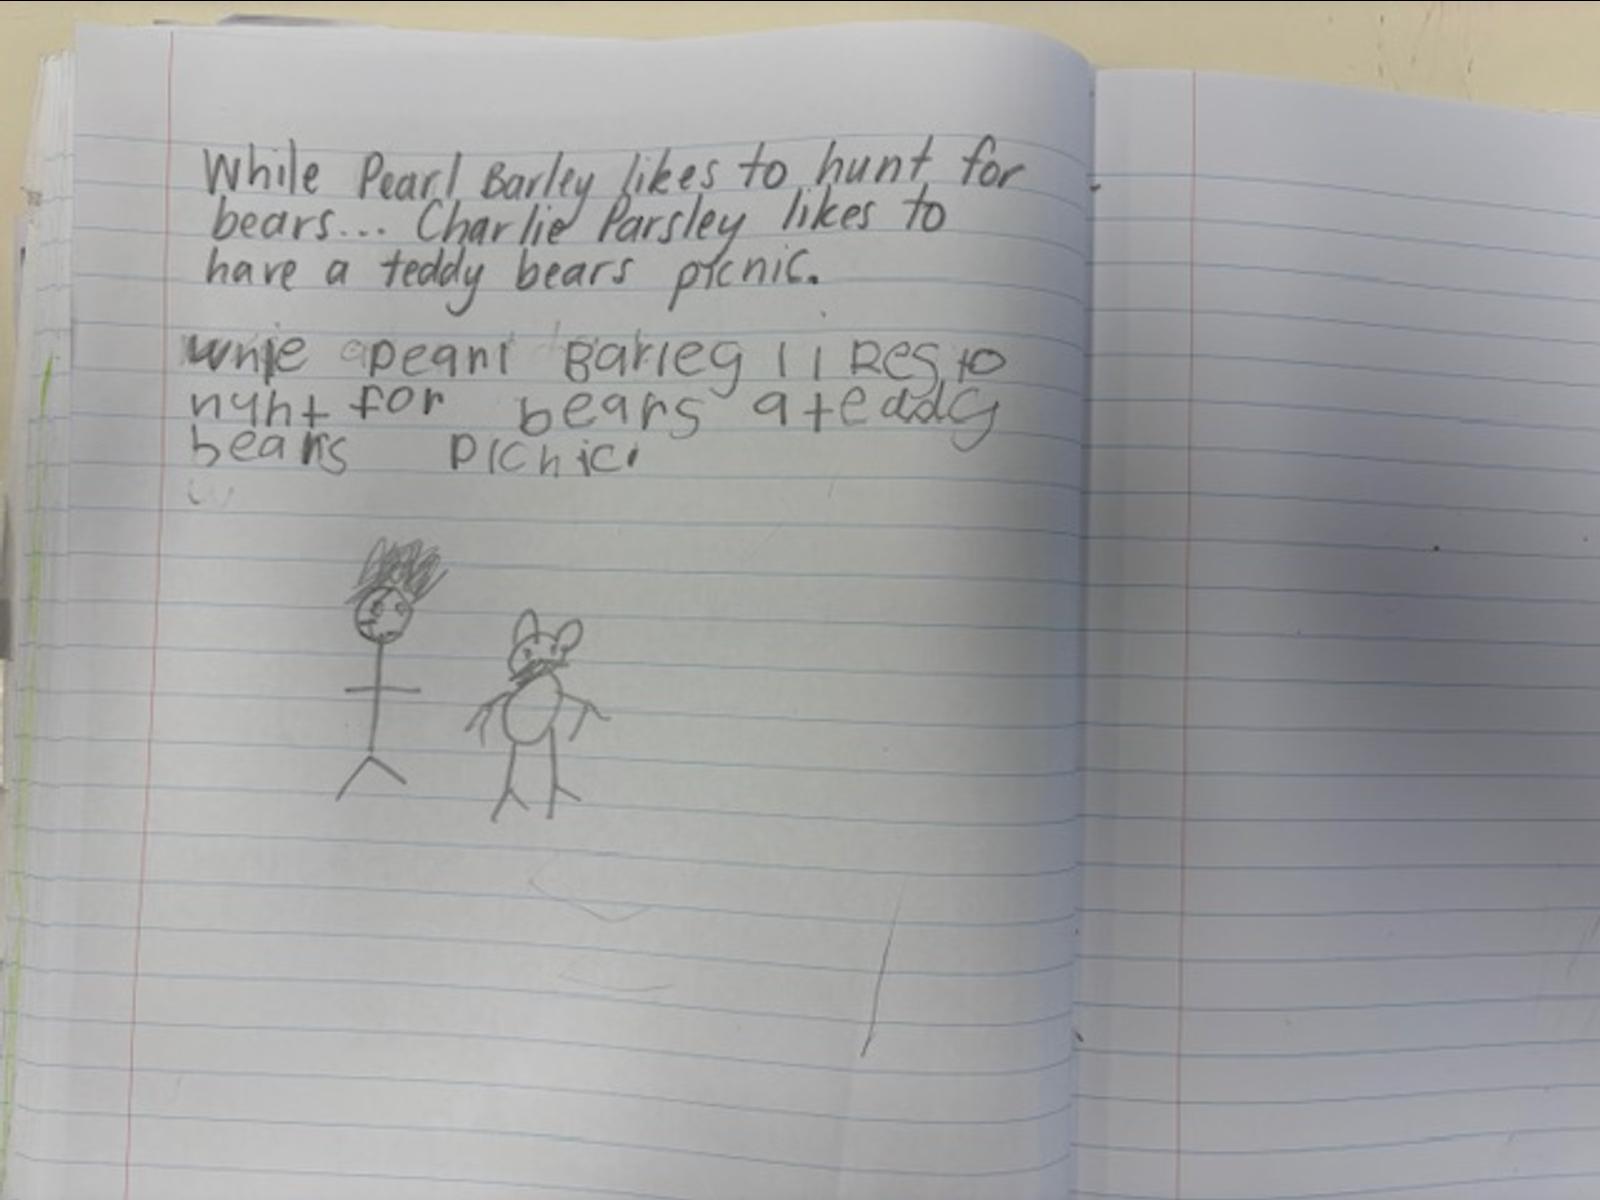 While Pearl Barley likes to hunt for
bears... Charlie Parsley likes to
have a teddy bears picnic.
wnie apeanl Barleg likes to
nyht for bears a teddy
bears picnic.